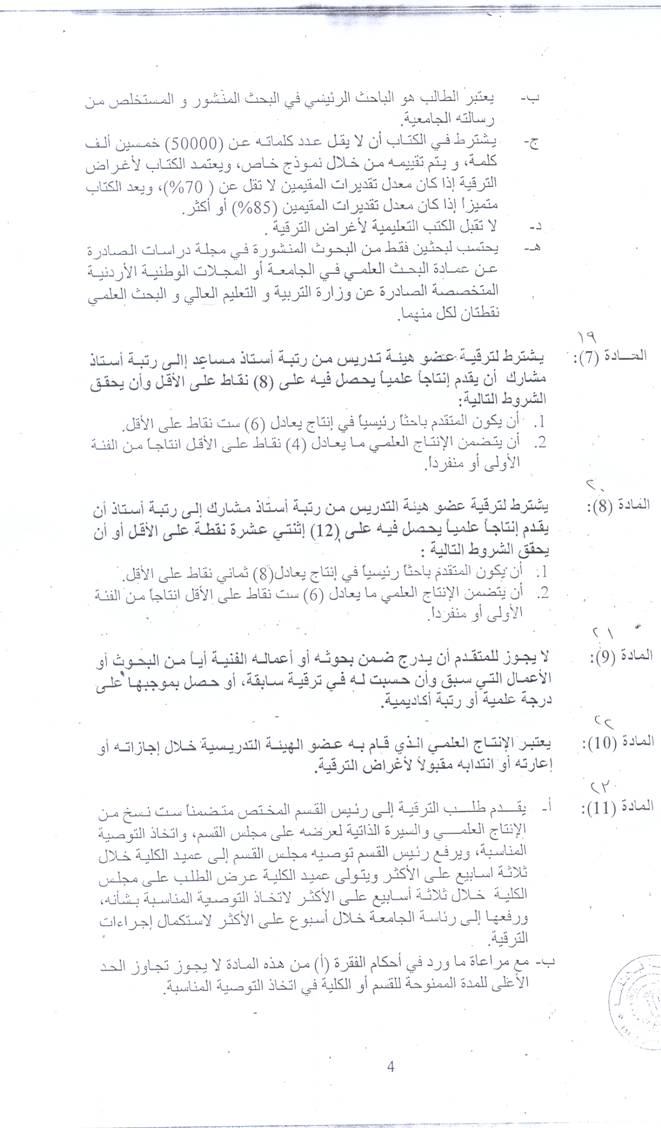 ب- يعتبر الطالب هو الباحث الرئيسي في البحث المنشور و المستخلص من
رسالته الجامعية.
ج- يشترط في الكتاب أن لا يقل عدد كلماته عن (50000) خمسين ألف
كلمة، و يتم تقييمه من خلال نموذج خاص، ويعتمد الكتاب لأغراض
الترقية إذا كان معدل تقديرات المقيمين لا تقل عن ( 70%)، ويعد الكتاب
متميزاً إذا كان معدل تقديرات المقيمين (85%) أو أكثر.
د- لا تقبل الكتب التعليمية لأغراض الترقية .
هـ- يحتسب لبحثين فقط من البحوث المنشورة في مجلة دراسات الصادرة
عن عمادة البحث العلمي في الجامعة أو المجلات الوطنية الأردنية
المتخصصة الصادرة عن وزارة التربية و التعليم العالي و البحث العلمي
نقطتان لكل منهما.
١٩
المادة (7): يشترط لترقية عضو هيئة تدريس من رتبة أستاذ مساعد إلى رتبة أستاذ
مشارك أن يقدم إنتاجاً علمياً يحصل فيه على (8) نقاط على الأقل وأن يحقق
الشروط التالية:
1. أن يكون المتقدم باحثاً رئيسياً في إنتاج يعادل (6) ست نقاط على الأقل.
2. أن يتضمن الإنتاج العلمي ما يعادل (4) نقاط على الأقل انتاجاً من الفئة
الأولى أو منفرداً.
٢٠
المادة (8): يشترط لترقية عضو هيئة التدريس من رتبة أستاذ مشارك إلى رتبة أستاذ أن
يقدم إنتاجاً علمياً يحصل فيه على (12) إثنتي عشرة نقطة على الأقل أو أن
يحقق الشروط التالية :
1. أن يكون المتقدم باحثاً رئيسياً في إنتاج يعادل(8) ثماني نقاط على الأقل.
2. أن يتضمن الإنتاج العلمي ما يعادل (6) ست نقاط على الأقل انتاجاً من الفئة
الأولى أو منفرداً.
٢١
المادة (9): لا يجوز للمتقدم أن يدرج ضمن بحوثه أو أعماله الفنية أياً من البحوث أو
الأعمال التي سبق وأن حسبت له في ترقية سابقة، أو حصل بموجبها على
درجة علمية أو رتبة أكاديمية.
٢٢
المادة (10): يعتبر الإنتاج العلمي الذي قام به عضو الهيئة التدريسية خلال إجازاته أو
إعارته أو انتدابه مقبولاً لأغراض الترقية.
٢٣
المادة (11): أ- يقدم طلب الترقية إلى رئيس القسم المختص متضمناً ست نسخ من
الإنتاج العلمي والسيرة الذاتية لعرضه على مجلس القسم، واتخاذ التوصية
المناسبة، ويرفع رئيس القسم توصيه مجلس القسم إلى عميد الكلية خلال
ثلاثة اسابيع على الأكثر ويتولى عميد الكلية عرض الطلب على مجلس
الكلية خلال ثلاثة أسابيع على الأكثر لاتخاذ التوصية المناسبة بشأنه،
ورفعها إلى رئاسة الجامعة خلال أسبوع على الأكثر لاستكمال إجراءات
الترقية.
ب- مع مراعاة ما ورد في أحكام الفقرة (أ) من هذه المادة لا يجوز تجاوز الحد
الأعلى للمدة الممنوحة للقسم أو الكلية في اتخاذ التوصية المناسبة.
4